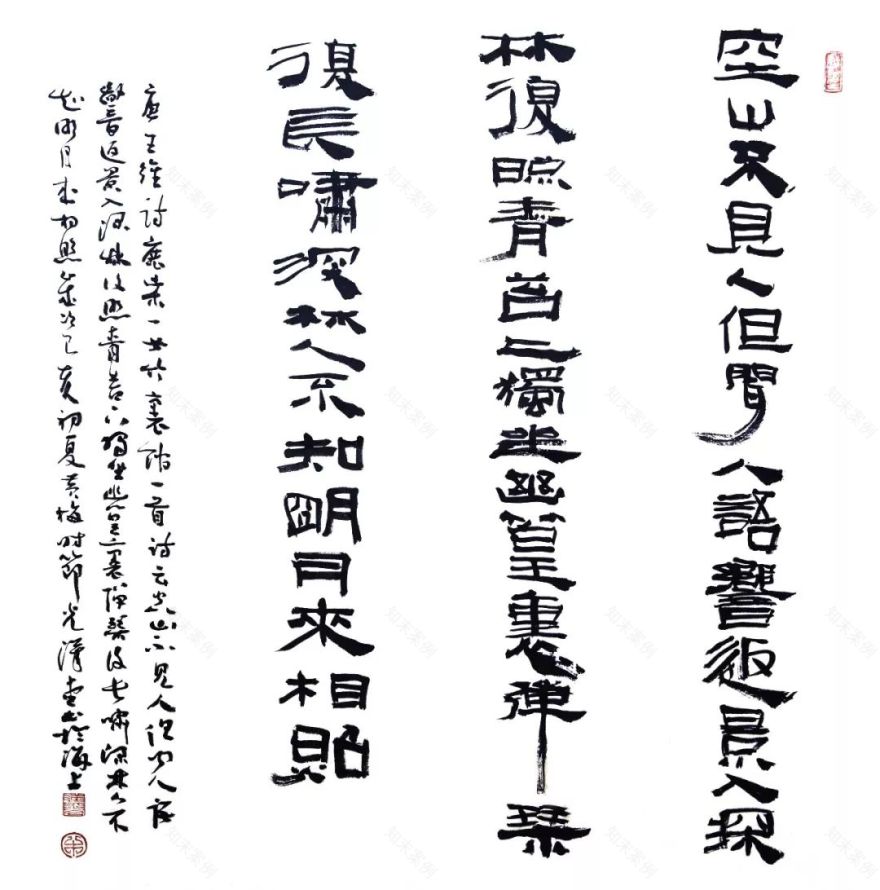 空山不見人但聞人語響返景入深
林復照青苔上獨坐幽篁裏彈琴
復長嘯深林人不知明月來相照
唐王維詩鹿柴一首竹裏館一首詩云空山不見人但聞人語
響音返景入深林復照青苔上獨坐幽篁裏彈琴復長嘯深林人不
知明月來相照歲次己亥初夏黃梅時節光漢書於海上
知末案例